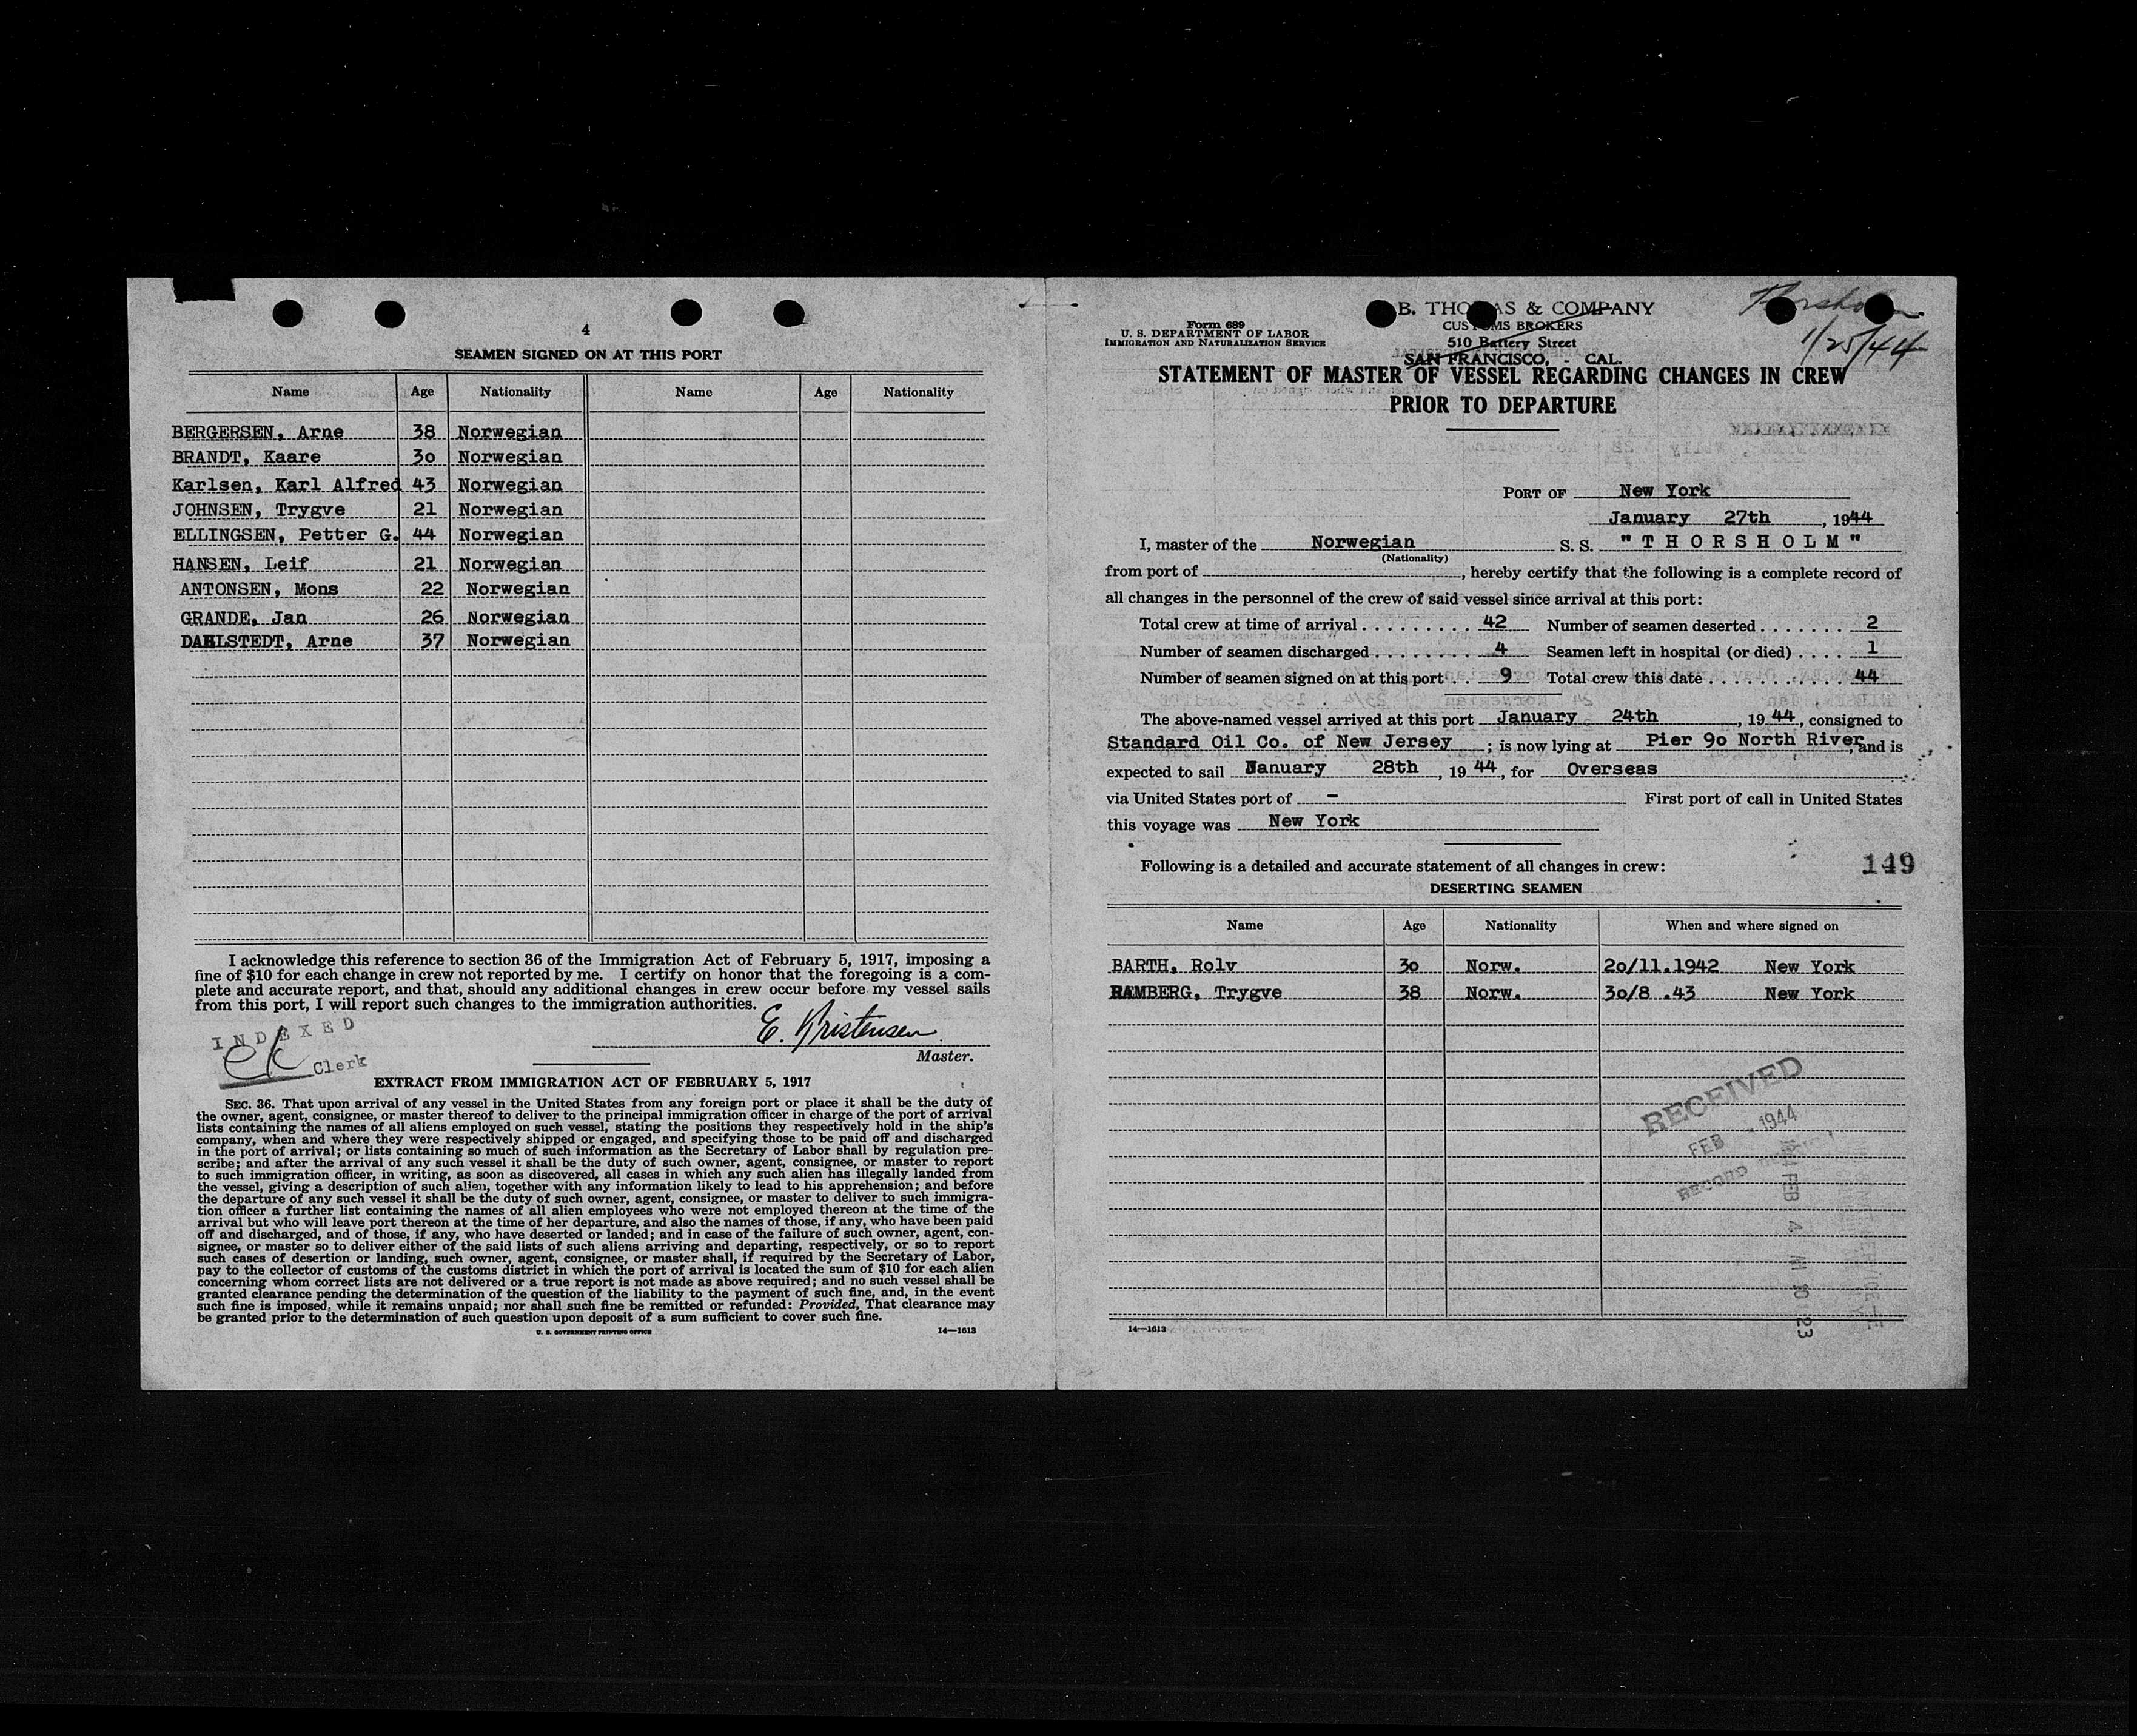 4
SEAMEN SIGNED ON AT THIS PORT
Name Age Nationality Name Age Nationality
BERGERSEN, Arne 38 Norwegian
BRANDT, Kaare 30 Norwegian
Karlsen, Karl Alfred 43 Norwegian
JOHNSEN, Trygve 21 Norwegian
ELLINGSEN, Petter G. 44 Norwegian
HANSEN, Leif 21 Norwegian
ANTONSEN, Mons 22 Norwegian
GRANDE, Jan 26 Norwegian
DAHLSTEDT, Arne 37 Norwegian
I acknowledge this reference to section 36 of the Immigration Act of February 5, 1917, imposing a
fine of $10 for each change in crew not reported by me. I certify on honor that the foregoing is a com-
plete and accurate report, and that, should any additional changes in crew occur before my vessel sails
from this port, I will report such changes to the immigration authorities.
INDEXED
Clerk
E. Kristensen
Master.
EXTRACT FROM IMMIGRATION ACT OF FEBRUARY 5, 1917
SEC. 36. That upon arrival of any vessel in the United States from any foreign port or place it shall be the duty of
the owner, agent, consignee, or master thereof to deliver to the principal immigration officer in charge of the port of arrival
lists containing the names of all aliens employed on such vessel, stating the positions they respectively hold in the ship's
company, when and where they were respectively shipped or engaged, and specifying those to be paid off and discharged
in the port of arrival; or lists containing so much of such information as the Secretary of Labor shall by regulation pre-
scribe; and after the arrival of any such vessel it shall be the duty of such owner, agent, consignee, or master to report
to such immigration officer, in writing, as soon as discovered, all cases in which any such alien has illegally landed from
the vessel, giving a description of such alien, together with any information likely to lead to his apprehension; and before
the departure of any such vessel it shall be the duty of such owner, agent, consignee, or master to deliver to such immigra-
tion officer a further list containing the names of all alien employees who were not employed thereon at the time of the
arrival but who will leave port thereon at the time of her departure, and also the names of those, if any, who have been paid
off and discharged, and of those, if any, who have deserted or landed; and in case of the failure of such owner, agent, con-
signee, or master so to deliver either of the said lists of such aliens arriving and departing, respectively, or so to report
such cases of desertion or landing, such owner, agent, consignee, or master shall, if required by the Secretary of Labor,
pay to the collector of customs of the customs district in which the port of arrival is located the sum of $10 for each alien
concerning whom correct lists are not delivered or a true report is not made as above required; and no such vessel shall be
granted clearance pending the determination of the question of the liability to the payment of such fine, and, in the event
such fine is imposed, while it remains unpaid; nor shall such fine be remitted or refunded: Provided, That clearance may
be granted prior to the determination of such question upon deposit of a sum sufficient to cover such fine.
U. S. GOVERNMENT PRINTING OFFICE 14—1613
Form 689
U. S. DEPARTMENT OF LABOR
IMMIGRATION AND NATURALIZATION SERVICE
B. THOMAS & COMPANY
CUSTOMS BROKERS
510 Battery Street
SAN FRANCISCO, - CAL.
Thorsholm
1/25/44
STATEMENT OF MASTER OF VESSEL REGARDING CHANGES IN CREW
PRIOR TO DEPARTURE
PORT OF New York
January 27th, 1944
I, master of the Norwegian S. S. "THORSHOLM"
(Nationality)
from port of , hereby certify that the following is a complete record of
all changes in the personnel of the crew of said vessel since arrival at this port:
Total crew at time of arrival . . . . . . . . . 42 Number of seamen deserted . . . . . . . 2
Number of seamen discharged . . . . . . . . 4 Seamen left in hospital (or died) . . . . 1
Number of seamen signed on at this port . . 9 Total crew this date . . . . . . . . . . . . 44
The above-named vessel arrived at this port January 24th, 1944, consigned to
Standard Oil Co. of New Jersey ; is now lying at Pier 90 North River, and is
expected to sail January 28th, 1944, for Overseas
via United States port of - First port of call in United States
this voyage was New York
Following is a detailed and accurate statement of all changes in crew:
149
DESERTING SEAMEN
Name Age Nationality When and where signed on
BARTH, Rolv 30 Norw. 20/11.1942 New York
RAMBERG, Trygve 38 Norw. 30/8 .43 New York
RECEIVED
FEB 1944
RECORD
1944 FEB 4 AM 10 23
14—1613